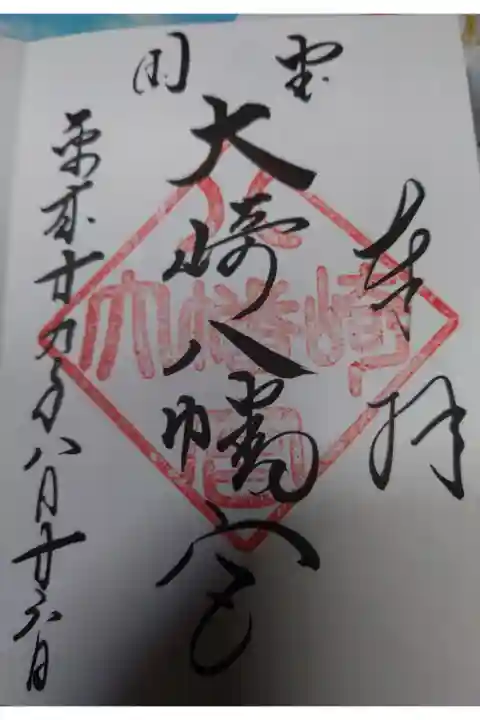 奉拝
国宝
大崎八幡宮
平成廿九年八月廿六日
大崎八幡宮